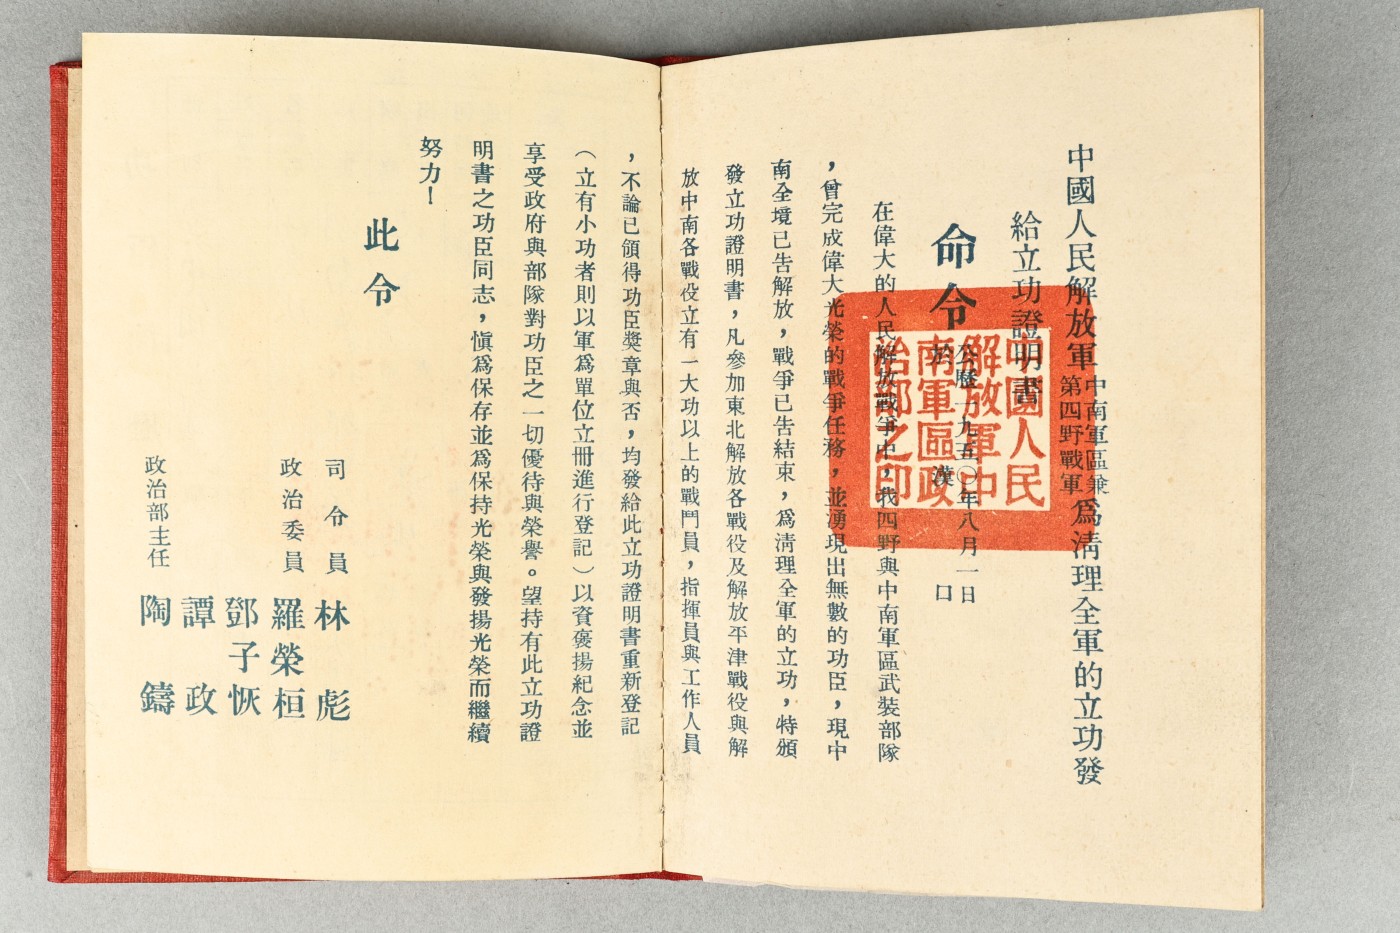 中國人民解放軍中南軍區兼第四野戰軍爲淸理全軍的立功發
給立功證明書
命令
公歷一九五〇年八月一日
於漢口
在偉大的人民解放戰爭中，我四野與中南軍區武裝部隊
，曾完成偉大光榮的戰爭任務，並湧現出無數的功臣，現中
南全境已告解放，戰爭已告結束，爲淸理全軍的立功，特頒
發立功證明書，凡參加東北解放各戰役及解放平津戰役與解
放中南各戰役立有一大功以上的戰鬥員，指揮員與工作人員
，不論已領得功臣獎章與否，均發給此立功證明書重新登記
（立有小功者則以軍爲單位立冊進行登記）以資褒揚紀念並
享受政府與部隊對功臣之一切優待與榮譽。望持有此立功證
明書之功臣同志，愼爲保存並爲保持光榮與發揚光榮而繼續
努力！
此令
司令員 林彪
政治委員 羅榮桓
鄧子恢
譚政
政治部主任 陶鑄
中國人民
解放軍中
南軍區政
治部之印